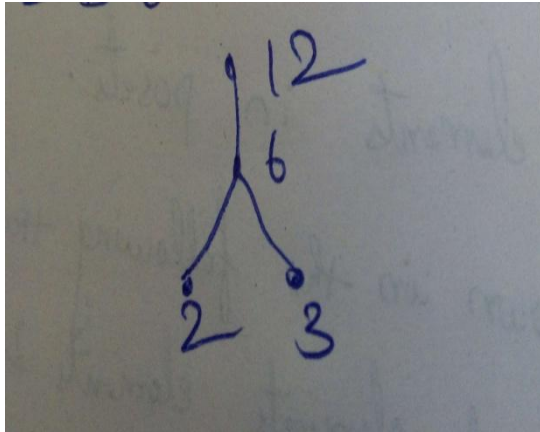 12
6
2 3